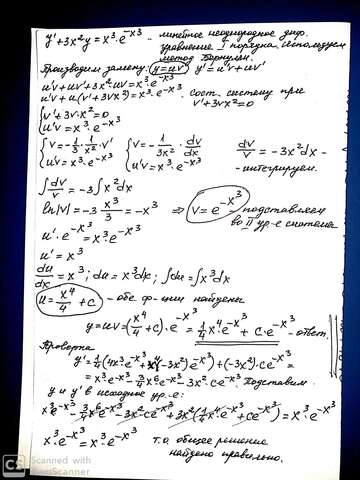 y' + 3x²y = x³·e^(-x³) -- линейное неоднородное диф.
уравнение I порядка. Используем
метод Бернулли.
Производим замену: y = uv, y' = u'v + uv'
u'v + uv' + 3x²·uv = x³·e^(-x³)
u'v + u(v' + 3vx²) = x³·e^(-x³), сост. систему при
v' + 3vx² = 0
{ v' + 3v·x² = 0
u'v = x³·e^(-x³)
{ v = -1/3·1/x²·v' { v = -1/(3x²)·dv/dx dv/v = -3x²dx -
u'v = x³·e^(-x³) u'v = x³·e^(-x³) - интегрируем.
∫dv/v = -3∫x²dx
ln|v| = -3 x³/3 = -x³ ⇒ v = e^(-x³) - подставляем
во II ур-е системы
u'·e^(-x³) = x³·e^(-x³)
u' = x³
du/dx = x³; du = x³dx; ∫du = ∫x³dx
u = x⁴/4 + c - обе ф-ции найдены
y = uv = (x⁴/4 + c)·e^(-x³) = 1/4 x⁴·e^(-x³) + c·e^(-x³) - ответ.
Проверка
y' = 1/4(4x³·e^(-x³) + x⁴(-3x²)e^(-x³)) + (-3x²)·ce^(-x³) =
= x³·e^(-x³) - 3/4 x⁶e^(-x³) - 3x²·ce^(-x³). Подставим
y и y' в исходное ур-е:
x³e^(-x³) - 3/4 x⁶e^(-x³) - 3x²·ce^(-x³) + 3x²(1/4 x⁴·e^(-x³) + ce^(-x³)) = x³·e^(-x³)
x³·e^(-x³) = x³·e^(-x³) т.о. общее решение
найдено правильно.
CS Scanned with
CamScanner